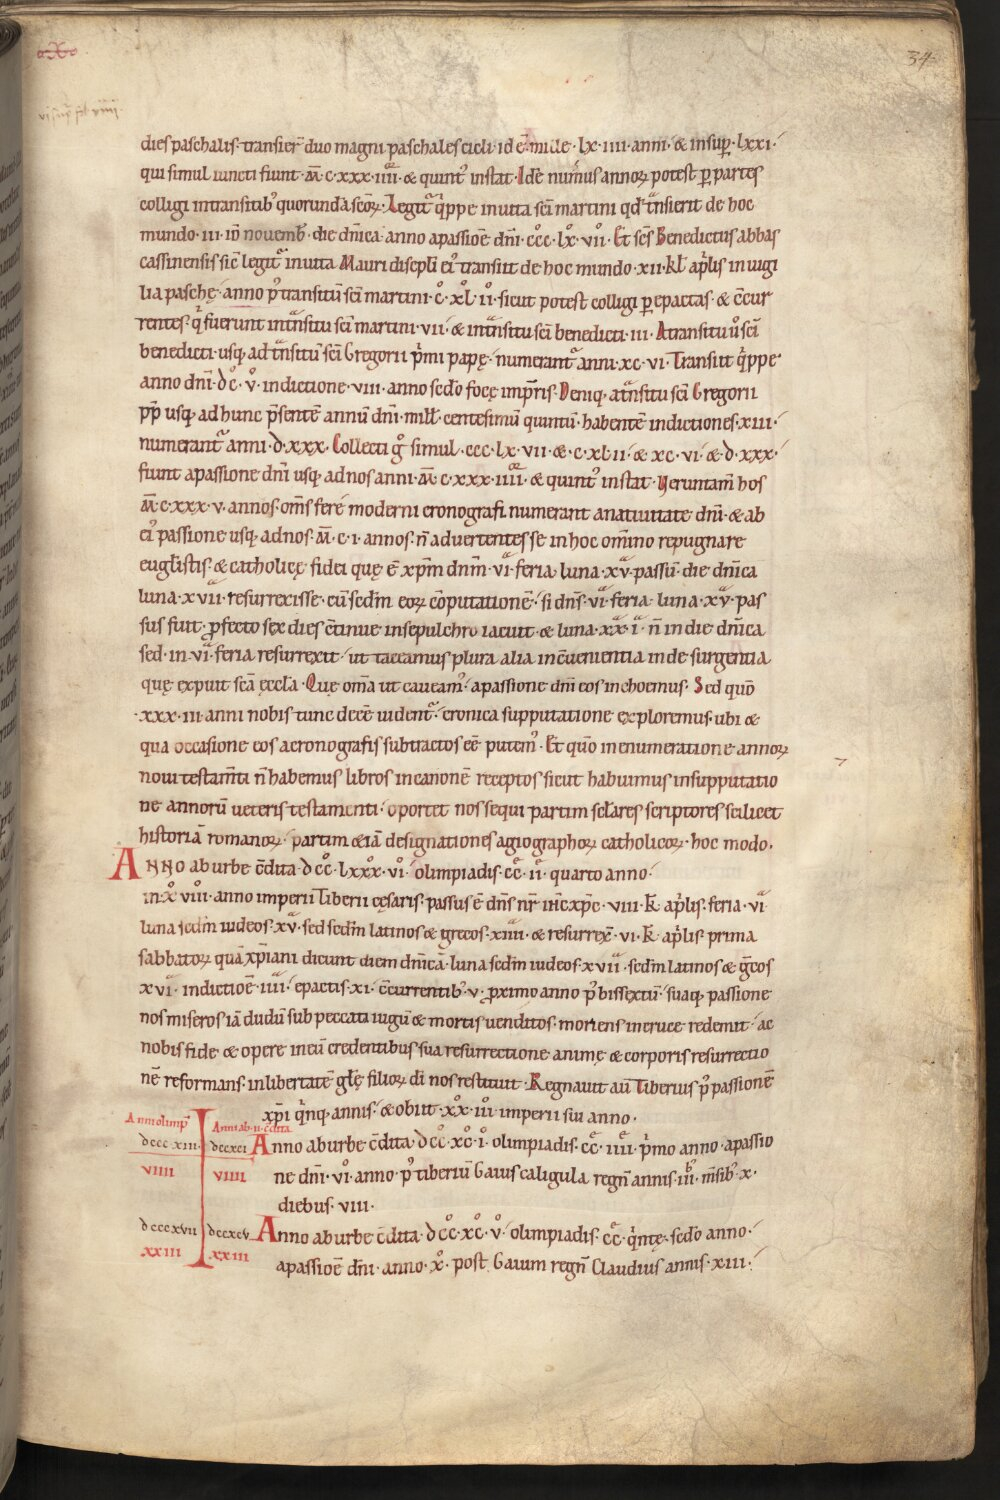 34
dies paschalis transier̄ duo magni paschales cicli· id ē mille· lx·iiii· anni· & insup̱· lxxi·
qui simul iuncti fiunt· m̄· c·xxx·iiii· & quint᾽ instat· Idē num̄us annoꝝ potest p̱ partes
colligi in transitib᾽ quorundā sc̄oꝝ· Legit᷑ q̍ppe in uita sc̄i martini qd̄ t̄nsierit de hoc
mundo· iii· id̄ novemb̄· die dn̄ica· anno a passiōe dn̄i· ccc· lx· vii· Et sc̄s Benedictus abbas
cassinensis sic̄ legit᷑ in uita Mauri discipl̄i ei᾽ transiit de hoc mundo· xii· kl̄ ap̍lis in uigi
lia paschę· anno p᾽ transitū sc̄i martini· c· xl· ii· sicut potest colligi p̱ epactas· & c̄cur
rentes· q̍ fuerunt in t̄nsitu sc̄i martini· vii· & in t̄nsitu sc̄i benedicti· iii· A transitu ū sc̄i
benedicti· usq; ad t̄nsitū sc̄i Gregorii p̍mi papę· numerant᷑ anni· xc· vi· Transiit q̍ppe
anno dn̄i· dc· v· indictione· viii· anno sc̄do focę imp̄ris· Deniq; a t̄nsitu sc̄i Gregorii
p̄p̄ usq; ad hunc p̄sentē annū dn̄i· mill̄· centesimū quintū· habentē indictiones· xiii·
numerant᷑ anni· d·xxx· Collecti g̊ simul· ccc· lx· vii· &· c· xlii· & xc· vi· & d·xxx·
fiunt a passione dn̄i usq; ad nos anni· m̄· c·xxx·iiii· & quint᾽ instat· Veruntam̄ hos
m̄· c·xxx·v· annos· om̄s fere moderni cronografi numerant a natiuitate dn̄i· & ab
ei᾽ passione usq; ad nos· m̄· c·i· annos· n̄ advertentes se in hoc om̄ino repugnare
eugl̄istis· & catholicę fidei quę ē xp̄m dn̄m· vi· feria· luna· xv· passū· die dn̄ica
luna· xvii· resurrexisse· cū sedm̄ eoꝝ c̄putationē· si dn̄s· vi· feria· luna· xv· pas
sus fuit· ꝓfecto sex dies c̄tinue in sepulchro iacuit· & luna· xx·i· n̄ in die dn̄ica
sed· in· vi· feria resurrexit· ut taceamus plura alia inc̄uenientia inde surgentia
quę expuit sc̄a ęccl̄a· Quę om̄a ut caueam᾽· a passione dn̄i eos inchoemus· Sed quō
·xxx·iii· anni nobis tunc deēe uident᷑· cronica supputatione exploremus· ubi &
qua occasione eos a cronografis subtractos eē putem᾽· Et quō in enumeratione annoꝝ
noui testam̄ti n̄ habemus libros in canonē receptos sicut habuimus in supputatio
ne annorū ueteris testamenti· oportet nos sequi partim sclares scriptores scilicet
historiā romanoꝝ· partim &iā designationes agiographoꝝ catholicoꝝ· hoc modo·
ANNO ab urbe c̄dita· dcc· lxxx· vi· olimpiadis· cc· ii· quarto anno·
in· x· viii· anno imperii Tiberii cęsaris· passus ē dn̄s nr̄ ih̄c xp̄c· viii· k̄ ap̍lis· feria· vi
luna sedm̄ iudeos· xv· sed sedm̄ latinos & grecos· xiiii· & resurrex̄· vi· k̄ ap̍lis· prima
sabbatoꝝ quā xp̄iani dicunt diem dn̄icā· luna sedm̄ iudeos· xvii· sedm̄ latinos & g̃cos
xvi· indictiōe· iiii· epactis· xi· c̄currentib᾽· v· ꝓximo anno p᾽ bissextū· suaq; passione
nos miseros iā dudū sub peccati iugū & mortis uenditos· moriens in cruce redemit· ac
nobis fide & opere in eū credentibus sua resurrectione animę & corporis resurrectio
nē reformans· in libertatē gl̄ę filioꝝ dī nos restituit· Regnauit aū Tiberius p᾽ passionē
xp̄i q̍nq; annis· & obiit· xx· iii· imperii sui anno·
Anni olimp̄ Anni ab· u· c̄dita
dccc xiii· dccxci Anno ab urbe c̄dita· dcc· xc· i· olimpiadis· cc· iiii· p̍mo anno· a passio
viiii viiii ne dn̄i· vi· anno· p᾽ tiberiū Gaius caligula regn̄ annis· iii· m̄sib᾽· x·
diebus· viii·
dcccxvii dccxcv Anno ab urbe c̄dita· dcc· xc· v· olimpiadis· cc· q̍ntę· sc̄do anno·
xxiii xxiii a passiōe dn̄i· anno· x· post Gaium regn̄ Claudius annis· xiii·